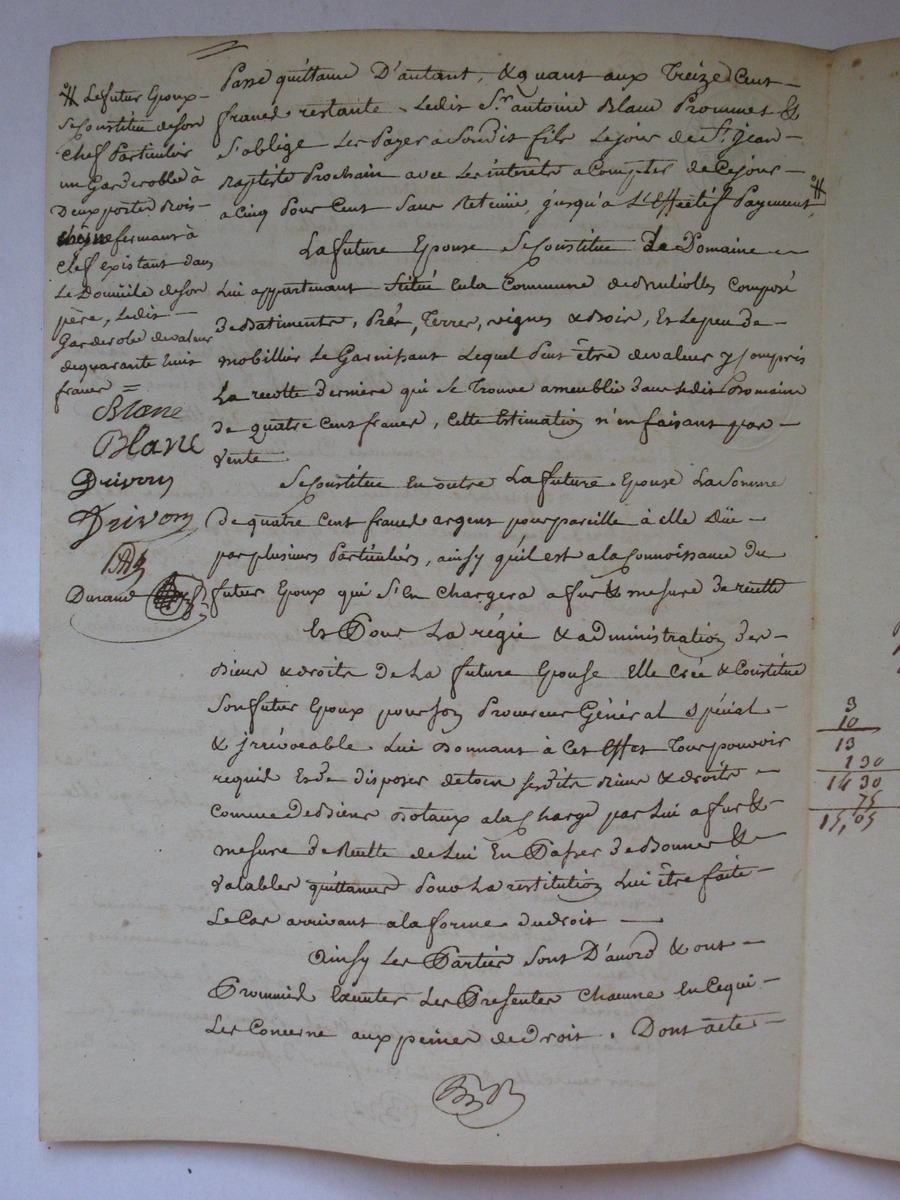 # Le futur Epoux
Se Constitue de son
chef Particulier
un Garderobbe à
Deux portes Bois
chêne fermant à
clef existant dans
Le Domicile de son
père, Ledit
Garderobe de valeur
de quarante huit
francs =
Blanc
Blanc
Drivon
Drivon
Durand
Passé quittance D'autant, & quant aux Treize Cent
francs restants Ledit Sr. antoine Blanc Prommet &
s'oblige Les Payer a Sondit fils Le jour de St. Jean
Baptiste Prochain avec Les interêts a Compter de Ce jour
a Cinq Pour Cent Sans Retenüe, jusqu'à L'Effectif Payement #
La future Epouse Se Constitue Le Domaine
Lui appartenant Situé en la Commune de Composé
de Batiments, Prés, Terres, vignes & Bois, Et Le peu de
mobillier Le Garnissant Lequel Peut être de valeur y Compris
La recolte derniere qui Se Trouve ameublée dans Ledit Domaine
de quatre Cent francs, Cette Estimation n'en faisant pas
vente
Se Constitue En outre La future Epouse La Somme
de quatre Cent francs argent pour pareille à elle Düe
par plusieurs Particuliers, ainsy qu'il est a la Connoissance du
futur Epoux qui S'En Chargera a fur & mesure de recette
Et Pour La régie & administration des
Biens & droits de La future Epouse Elle Crée & Constitue
Son futur Epoux pour Son Procureur Général Spécial
& irrévocable Lui Donnant à Cet Effet Tout pouvoir
requis Et de disposer de tous Sesdits Biens & droits
Comme de Biens Dotaux a la Charge par Lui a fur &
mesure de Recette de Lui En Passer de Bonnes &
Valables quittances Pour La restitution Lui être faite
Le Cas arrivant a la forme du droit
Ainsy Les Parties Sont D'acord & ont
Prommis Executer Les Presentes Chacune En Ce qui
Les Concerne aux peines de droit. Dont acte
3
10
13
1 30
14 30
75
15,05